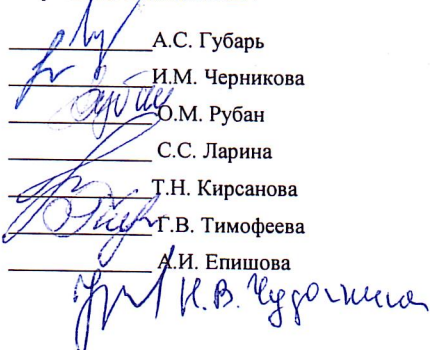 А.С. Губарь
И.М. Черникова
О.М. Рубан
С.С. Ларина
Т.Н. Кирсанова
Г.В. Тимофеева
А.И. Епишова
Н.В.